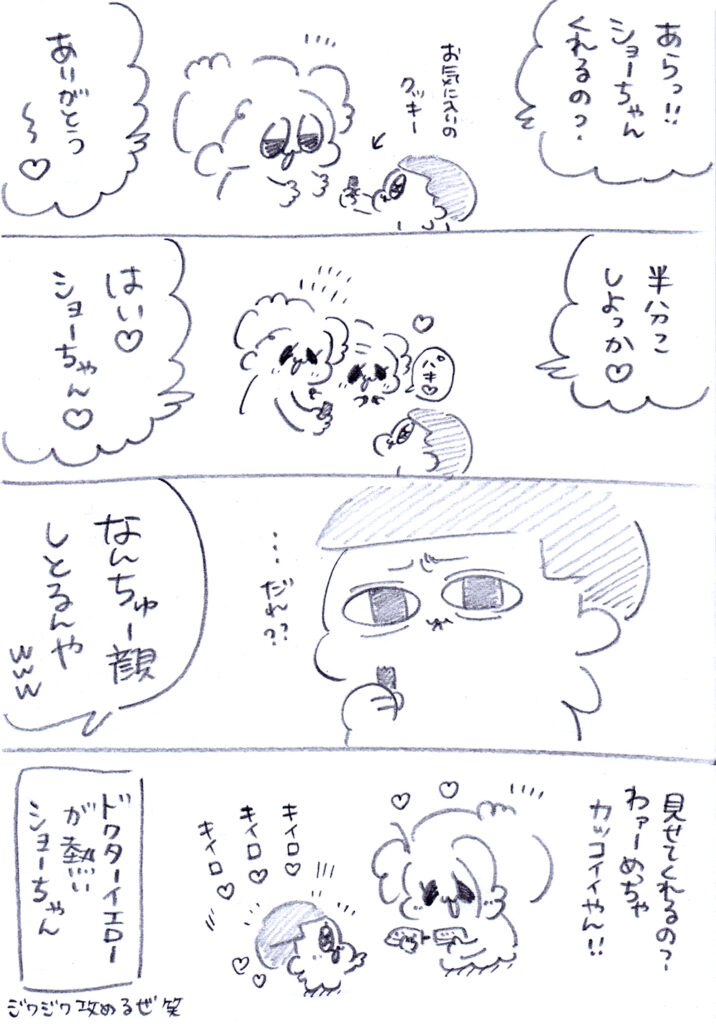 あらっ!!
ショーちゃん
くれるの?
お気に入いの
クッキー
ありがとう
〜♡
半分こ
しよっか♡
パキ♡
はい♡
ショーちゃん♡
…だれ??
なんちゅー顔
しとるんや
www
見せてくれるの?
わァーめっちゃ
カッコイイやん!!
キイロ♡
キイロ♡
キイロ♡
ドクターイエロー
が熱い
ショーちゃん
ジワジワ攻めるぜ笑